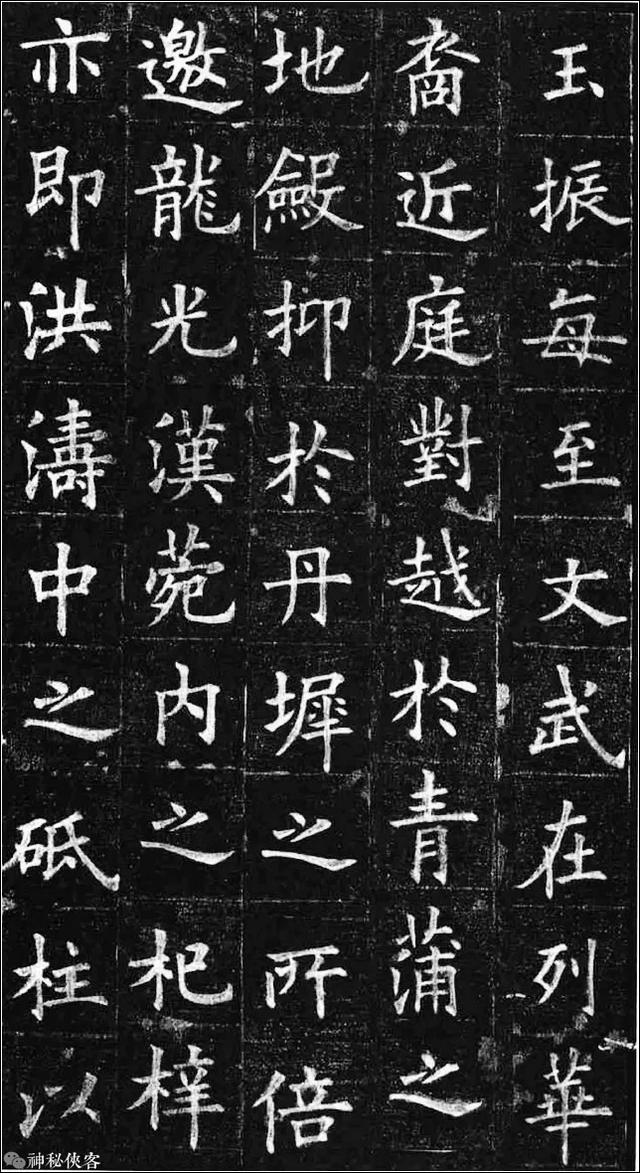 玉振每至文武在列華
裔近庭對越於青蒲之
地斂抑於丹墀之所倍
邀龍光漢菀内之杞梓
亦即洪濤中之砥柱以
神秘俠客